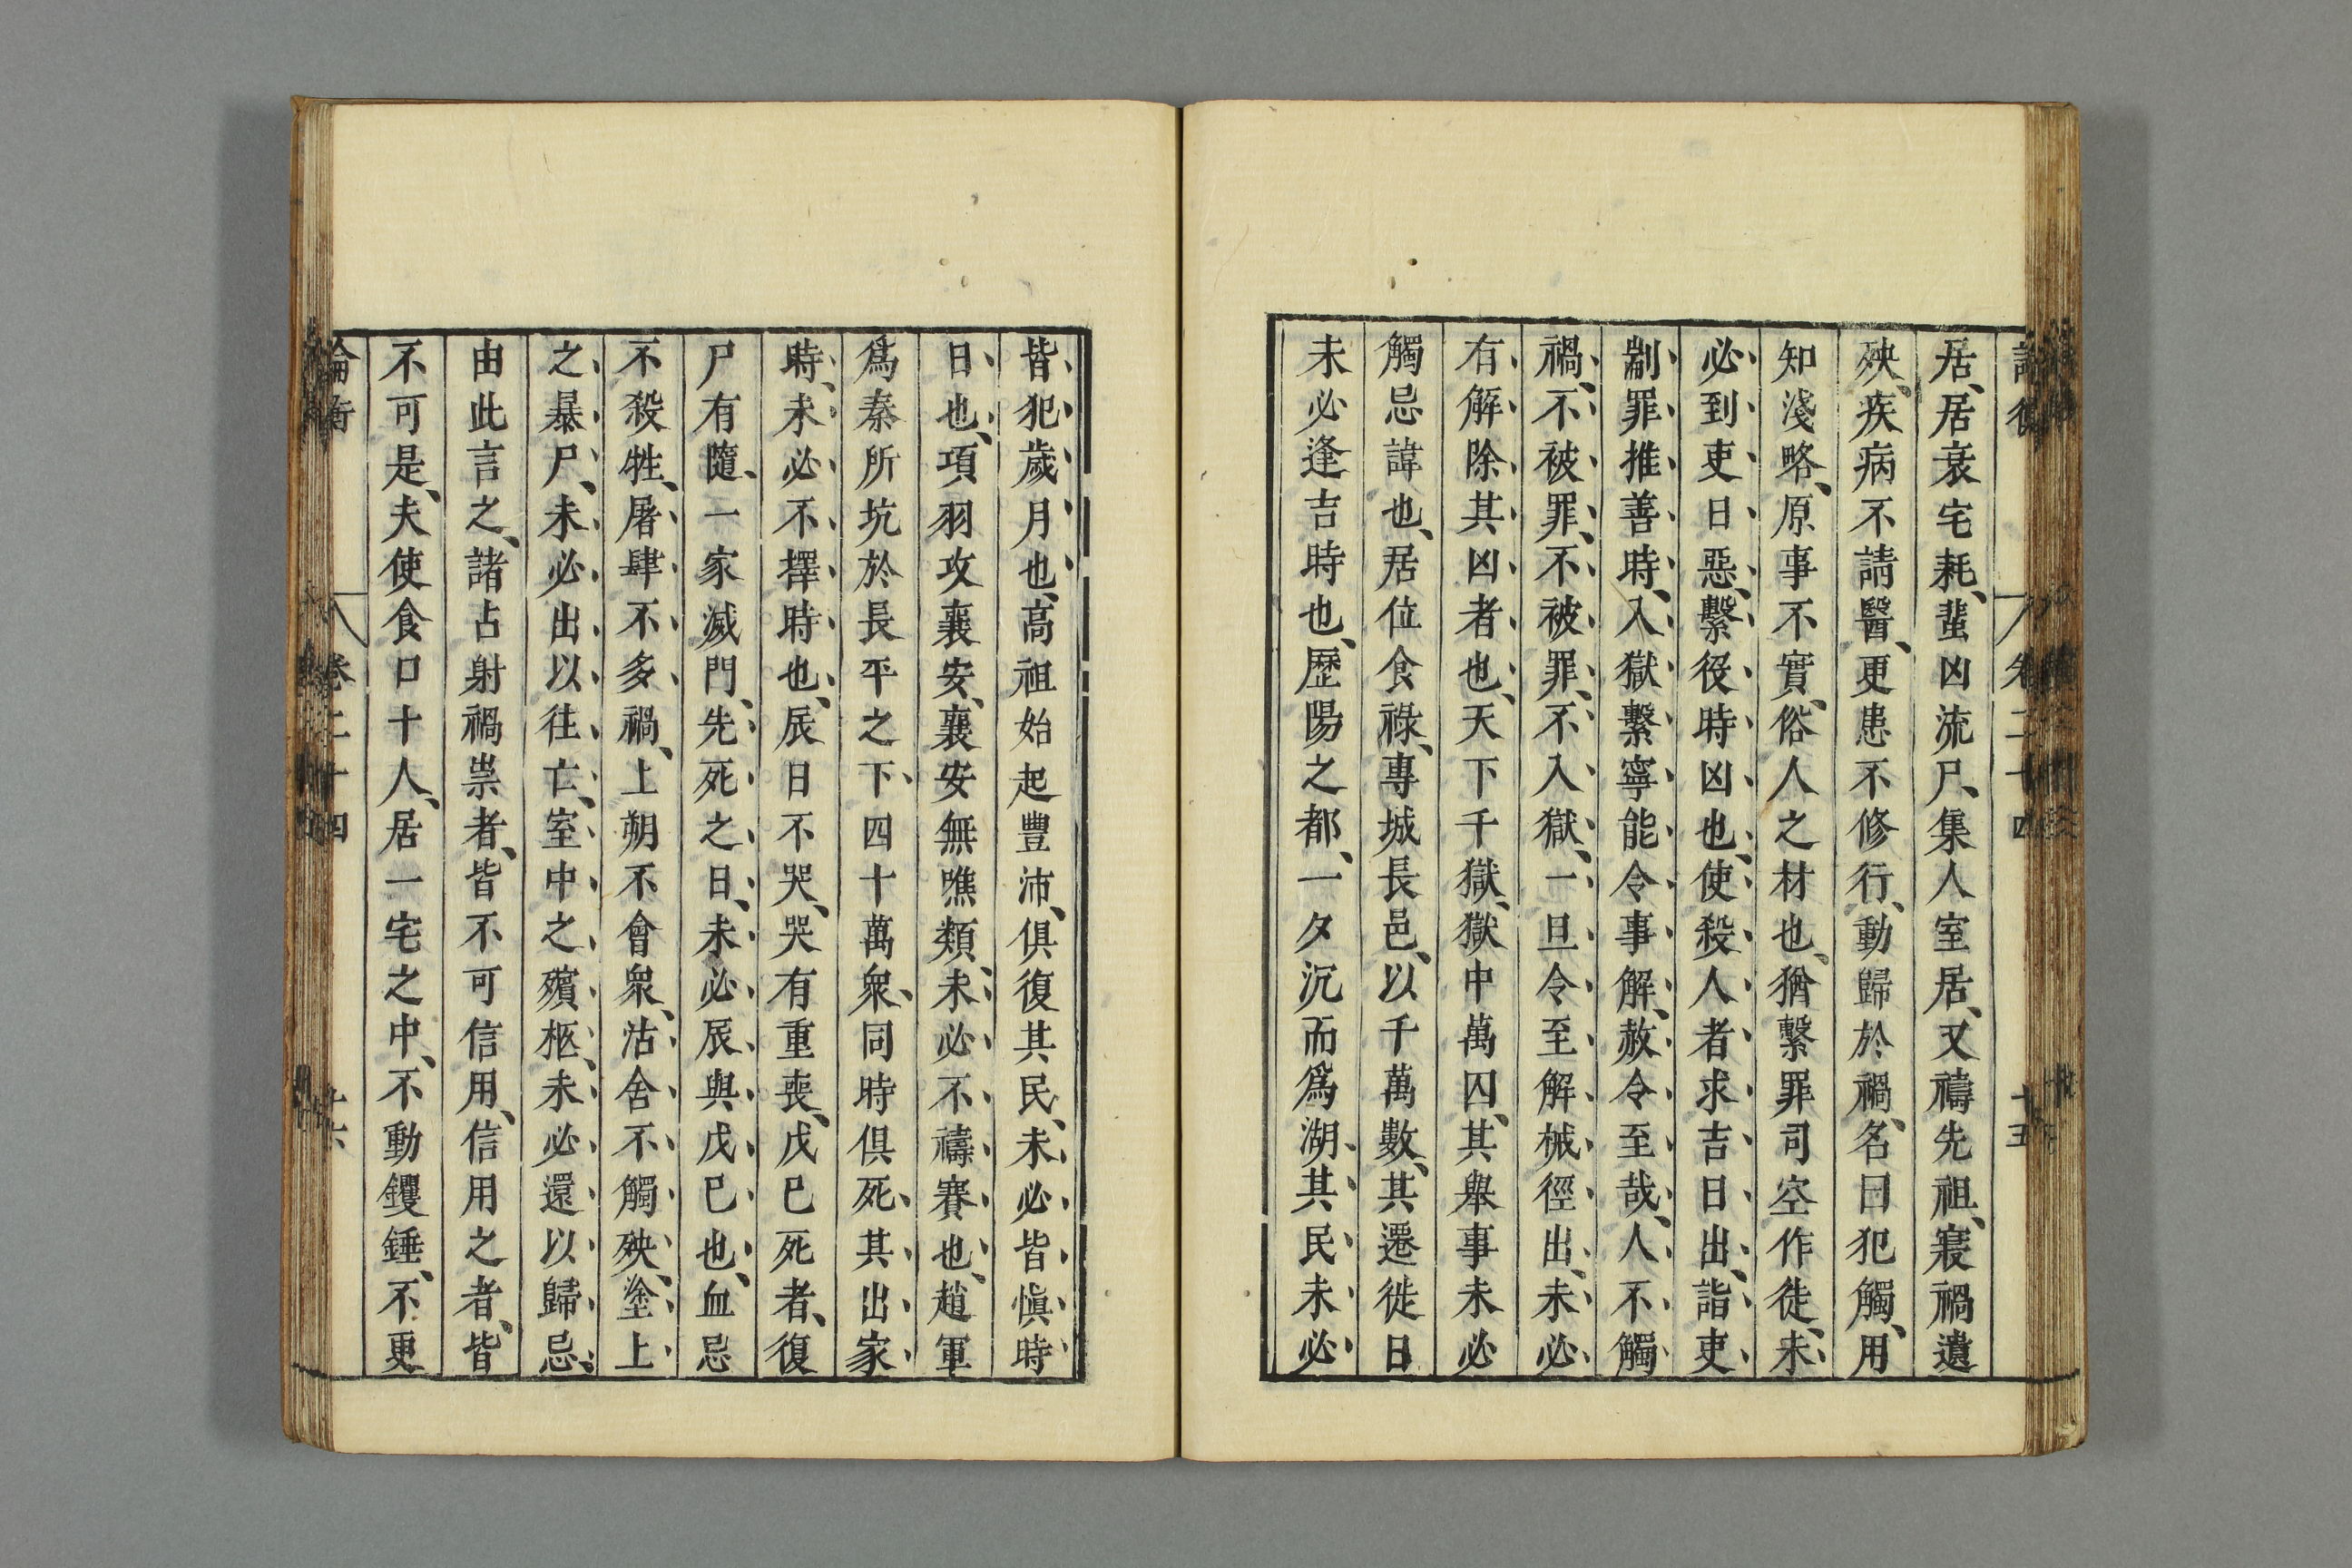 居、居衰宅耗、蜚凶流尸、集人室居、又禱先祖、寑禍遺
殃、疾病不請醫、更患不修行、動歸於禍、名曰犯觸、用
知淺略、原事不實、俗人之材也、猶繫罪司空作徒、未
必到吏日惡、繫役時凶也、使殺人者求吉日出、詣吏
剬罪推善時、入獄繫、寧能令事解、赦令至哉、人不觸
禍、不被罪、不被罪、不入獄、一旦令至解械徑出、未必
有解除其凶者也、天下千獄、獄中萬囚、其舉事未必
觸忌諱也、居位食祿、專城長邑、以千萬數、其遷徙日
未必逢吉時也、歷陽之都、一夕沉而爲湖、其民未必
皆犯歲月也、高祖始起豐沛、俱復其民、未必皆愼時
日也、項羽攻襄安、襄安無噍類、未必不禱賽也、趙軍
爲秦所坑於長平之下、四十萬衆、同時俱死、其出家
時、未必不擇時也、辰日不哭、哭有重喪、戊巳死者、復
尸有隨、一家滅門、先死之日、未必辰與戊巳也、血忌
不殺牲、屠肆不多禍、上朔不會衆、沽舍不觸殃、塗上
之暴尸、未必出以往亡、室中之殯柩、未必還以歸忌、
由此言之、諸占射禍祟者、皆不可信用、信用之者、皆
不可是、夫使食口十人、居一宅之中、不動钁錘、不更
論衡 卷二十四 十六